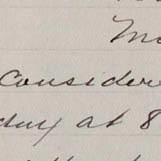 Mo
Considere
day at 8